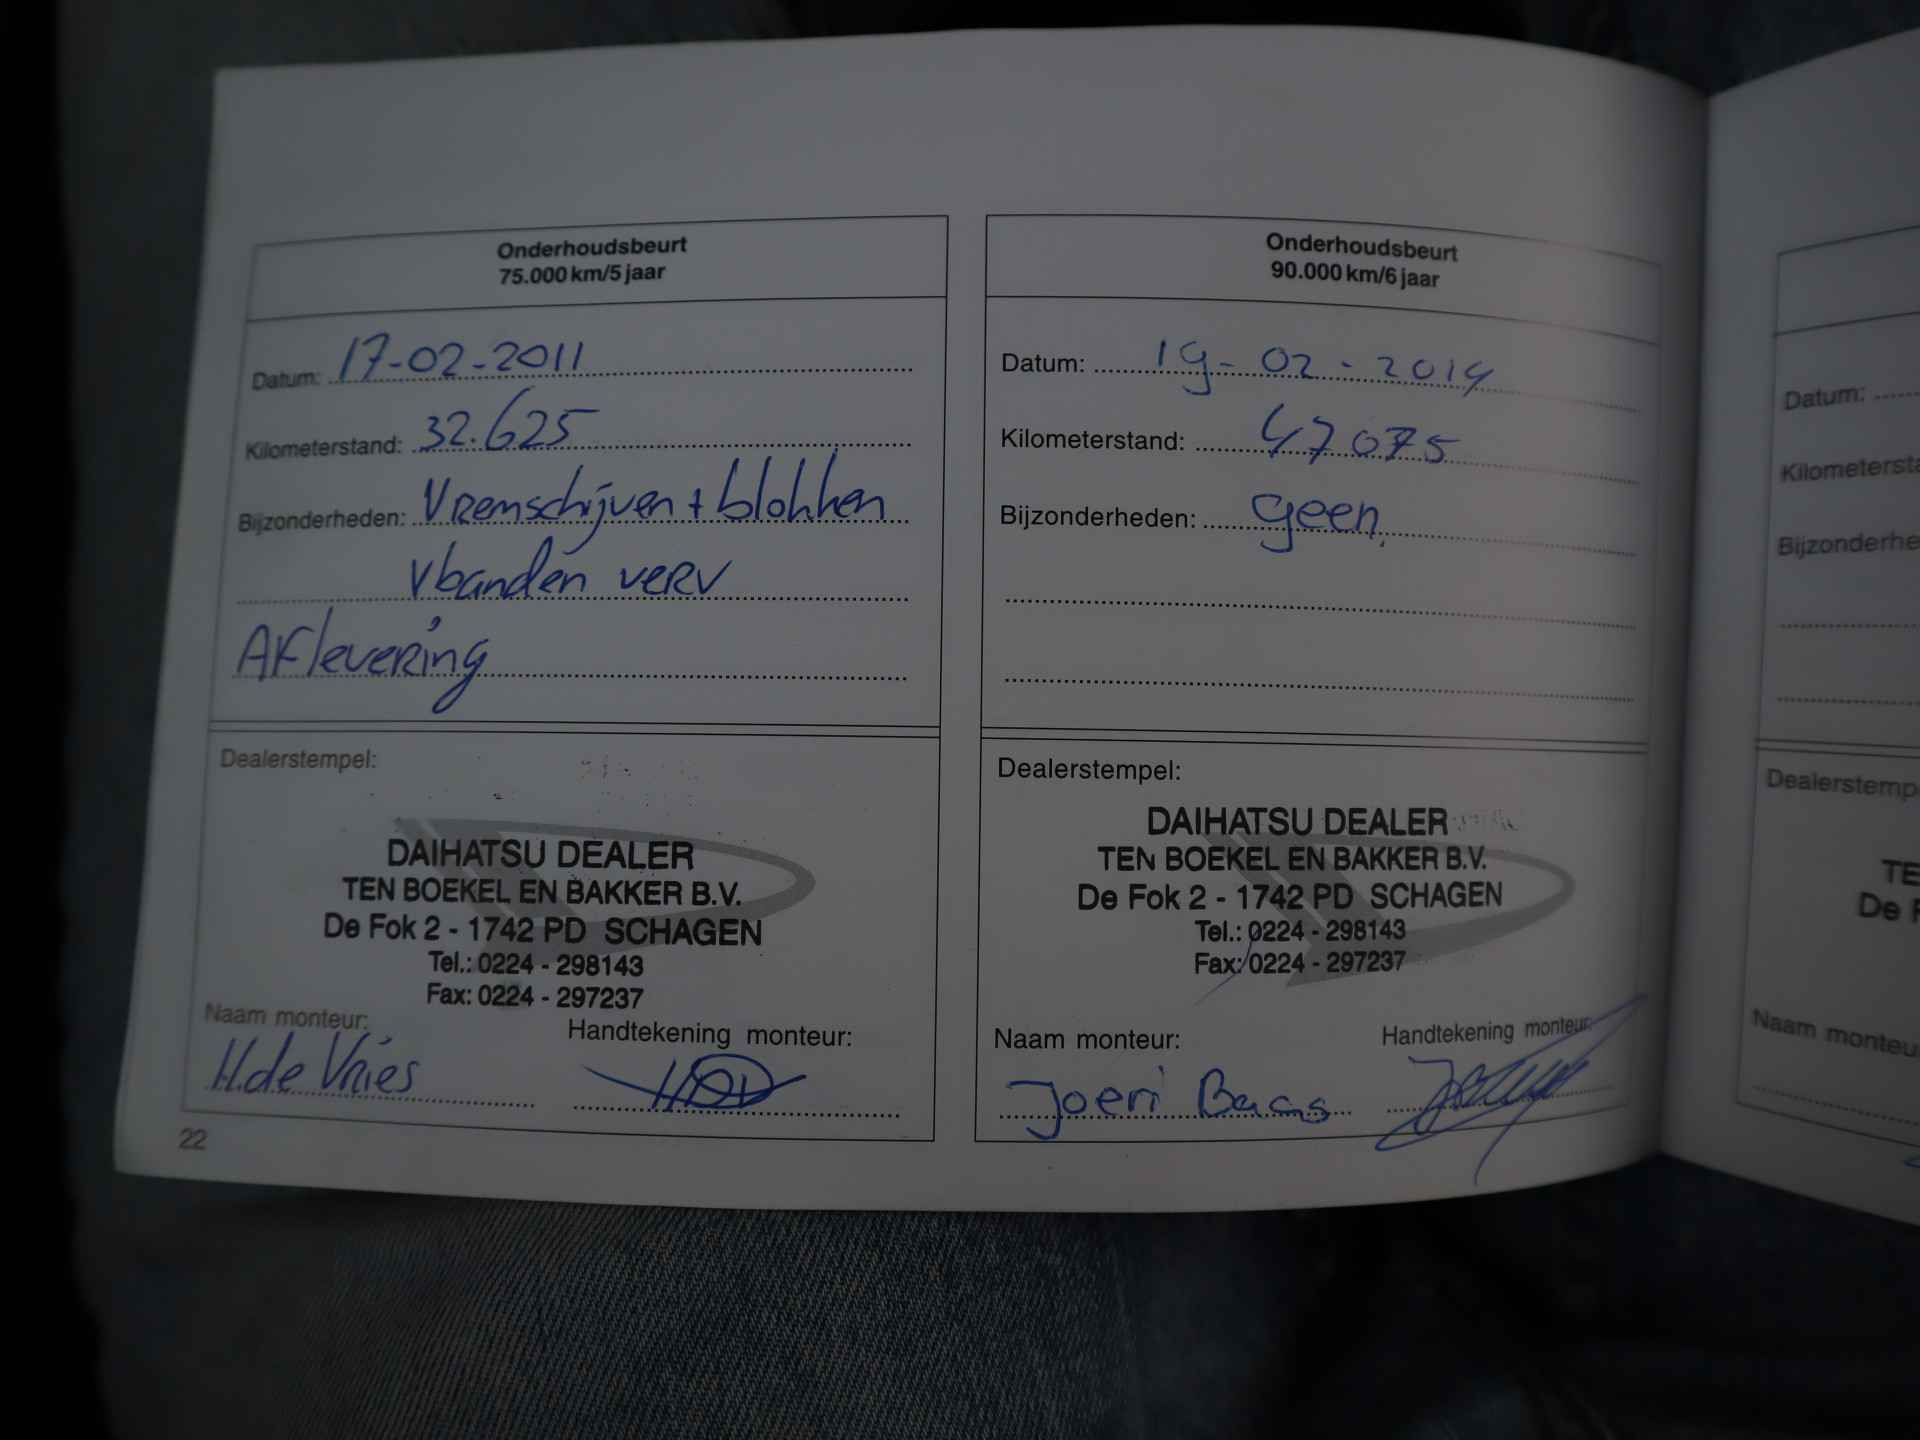 Onderhoudsbeurt
75.000 km/5 jaar
Datum: 17-02-2011
Kilometerstand: 32.625
Bijzonderheden: Vremschijven + blokken
Vbanden verv
Aflevering
Dealerstempel:
DAIHATSU DEALER
TEN BOEKEL EN BAKKER B.V.
De Fok 2 - 1742 PD SCHAGEN
Tel.: 0224 - 298143
Fax: 0224 - 297237
Naam monteur: Handtekening monteur:
H.de Vries
22
Onderhoudsbeurt
90.000 km/6 jaar
Datum: 19-02-2014
Kilometerstand: 47075
Bijzonderheden: geen.
Dealerstempel:
DAIHATSU DEALER
TEN BOEKEL EN BAKKER B.V.
De Fok 2 - 1742 PD SCHAGEN
Tel.: 0224 - 298143
Fax: 0224 - 297237
Naam monteur: Handtekening monteur:
Joeri Baas
Datum:
Kilometersta
Bijzonderhe
Dealerstemp
TE
De F
Naam monteu